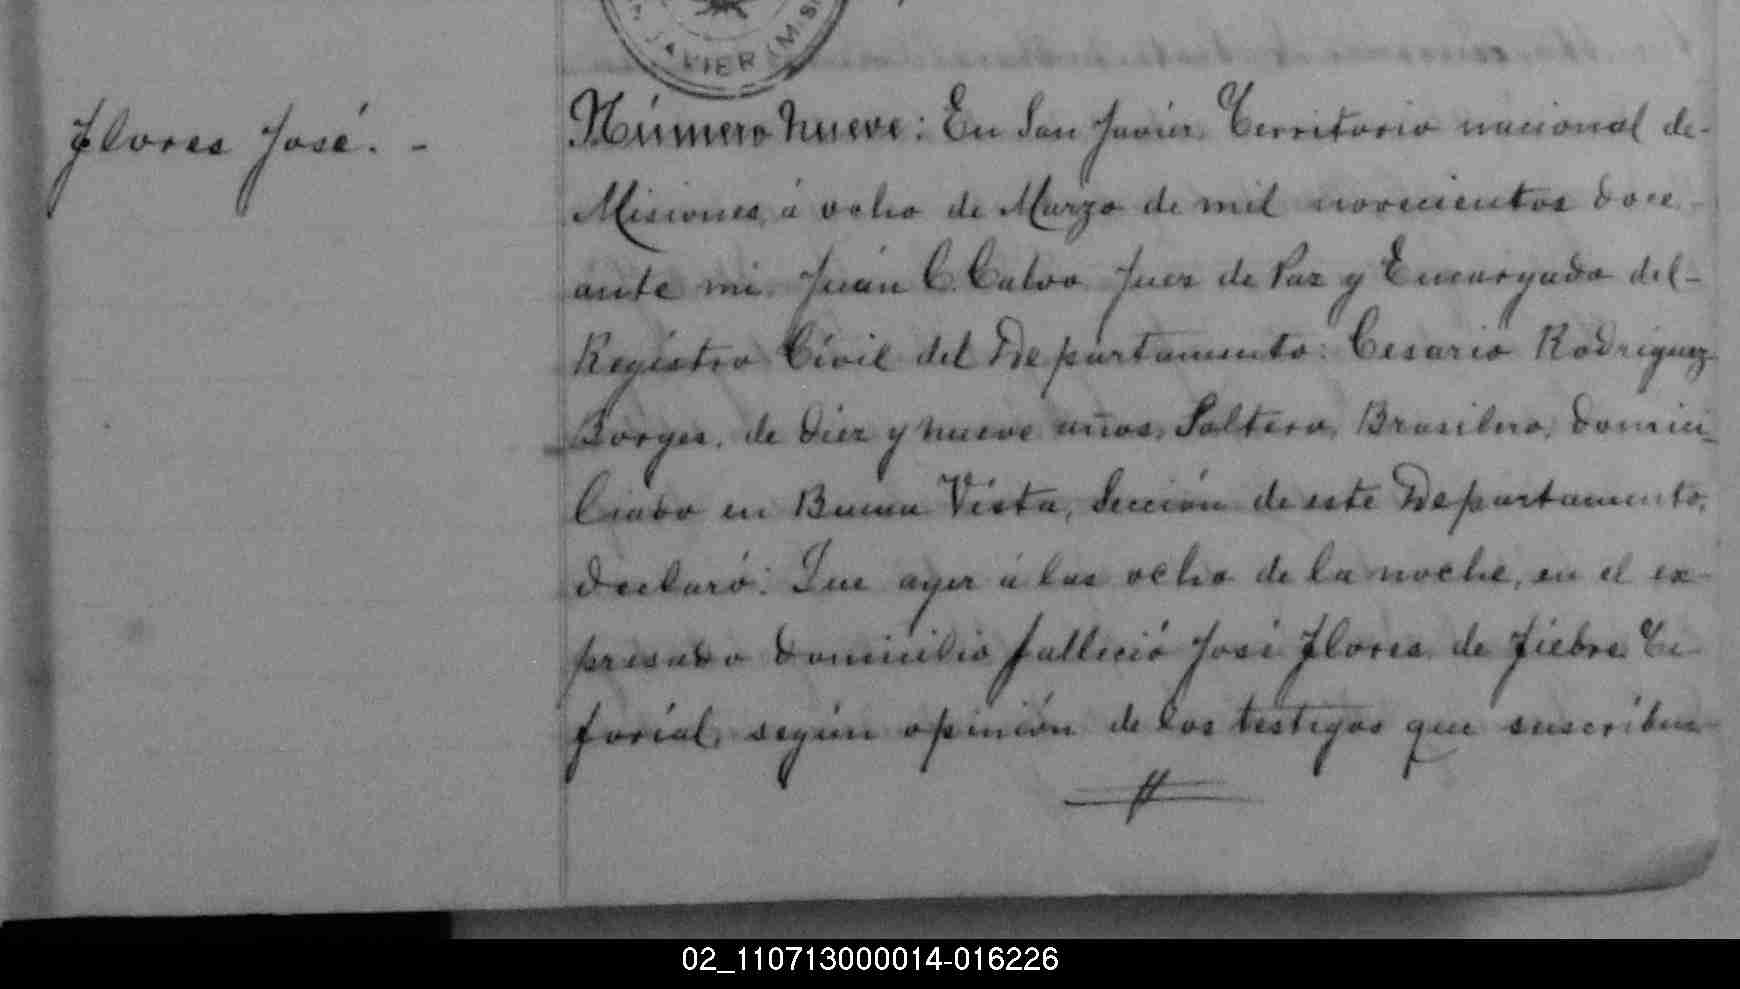 JAVIER (MS
Flores José. -
Número nueve: En San Javier, Territorio nacional de-
Misiones, á ocho de Marzo de mil novecientos doce-
ante mi, Juan C. Calvo Juez de Paz y Encargado del-
Registro Civil del Departamento: Cesario Rodriguez
Borges, de diez y nueve años, Soltero, Brasilero, domici-
liado en Buena Vista, Sección de este Departamento,
declaró: Que ayer á las ocho de la noche, en el ex-
presado domicilio falleció José Flores, de fiebre
según opinión de los testigos que suscriben
02_110713000014-016226